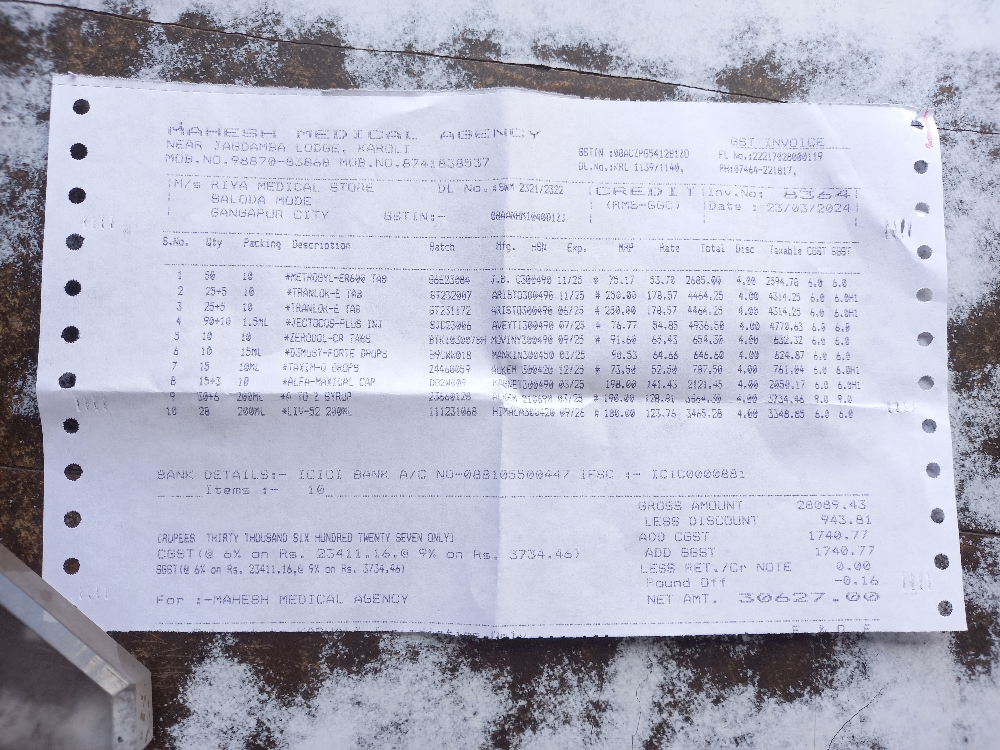 MAHESH MEDICAL AGENCY
NEAR JAGDAMBA LODGE, KAROLI
MOB.NO.98870-83868 MOB.NO.8741838537
GST INVOICE
GSTIN :08ACZPG5412B1ZD FL No.:22217028000119
DL.No.:KRL 1139/1140, PH:07464-221817,
M/s RIYA MEDICAL STORE DL No.:SWM 2321/2322 CREDIT Inv.No: 8364
SALODA MODE (RMS-GGC) Date : 23/03/2024
GANGAPUR CITY GSTIN:-
S.No. Qty Packing Description Batch Mfg. HSN Exp. MRP Rate Total Disc Taxable CGST SGST
1 50 10 *METROGYL-ER600 TAB J.B. C300490 11/25 * 75.17 53.70 2685.00 4.00 2594.78 6.0 6.0
2 25+5 10 *TRANLOK-E TAB GT232007 ARISTO300490 11/25 * 250.00 178.57 4464.25 4.00 4314.25 6.0 6.0H1
3 25+5 10 *TRANLOK-E TAB GT231172 ARISTO300490 178.57 4464.25 4.00 4314.25 6.0 6.0H1
4 90+10 1.5ML *JECTOCOS-PLUS INJ SJD23006 AVEYTI300490 07/25 * 76.77 54.85 4936.50 4.00 4770.63 6.0 6.0
5 10 10 *ZERODOL-CR TABS 09/25 * 91.60 65.43 654.30 4.00 632.32 6.0 6.0
6 10 15ML *D3MUST-FORTE DROPS MANKIN300450 03/25 90.53 64.66 646.60 4.00 624.87 6.0 6.0
7 15 10ML *TAXIM-O DROPS 24460059 ALKEM 300420 12/25 * 73.50 52.50 787.50 4.00 761.04 6.0 6.0H1
8 15+3 10 *ALFA-MAXICAL CAP D02W009 MAGNET300490 03/25 198.00 141.43 2121.45 4.00 2050.17 6.0 6.0
9 30+6 200ML *A TO Z SYRUP 23660128 ALKEM 210690 03/25 * 190.00 128.81 3864.30 4.00 3734.46 9.0 9.0
10 28 200ML *LIV-52 200ML 111231068 HIMALA300420 09/26 * 180.00 123.76 3465.28 4.00 3348.85 6.0 6.0
BANK DETAILS:- ICICI BANK A/C NO-088105500447 IFSC :- ICIC0000881
Items :- 10
GROSS AMOUNT 28089.43
LESS DISCOUNT 943.81
(RUPEES THIRTY THOUSAND SIX HUNDRED TWENTY SEVEN ONLY)
ADD CGST 1740.77
CGST(@ 6% on Rs. 23411.16,@ 9% on Rs. 3734.46)
ADD SGST 1740.77
SGST(@ 6% on Rs. 23411.16,@ 9% on Rs. 3734.46)
LESS RET./Cr NOTE 0.00
Round Off -0.16
For :-MAHESH MEDICAL AGENCY
NET AMT. 30627.00